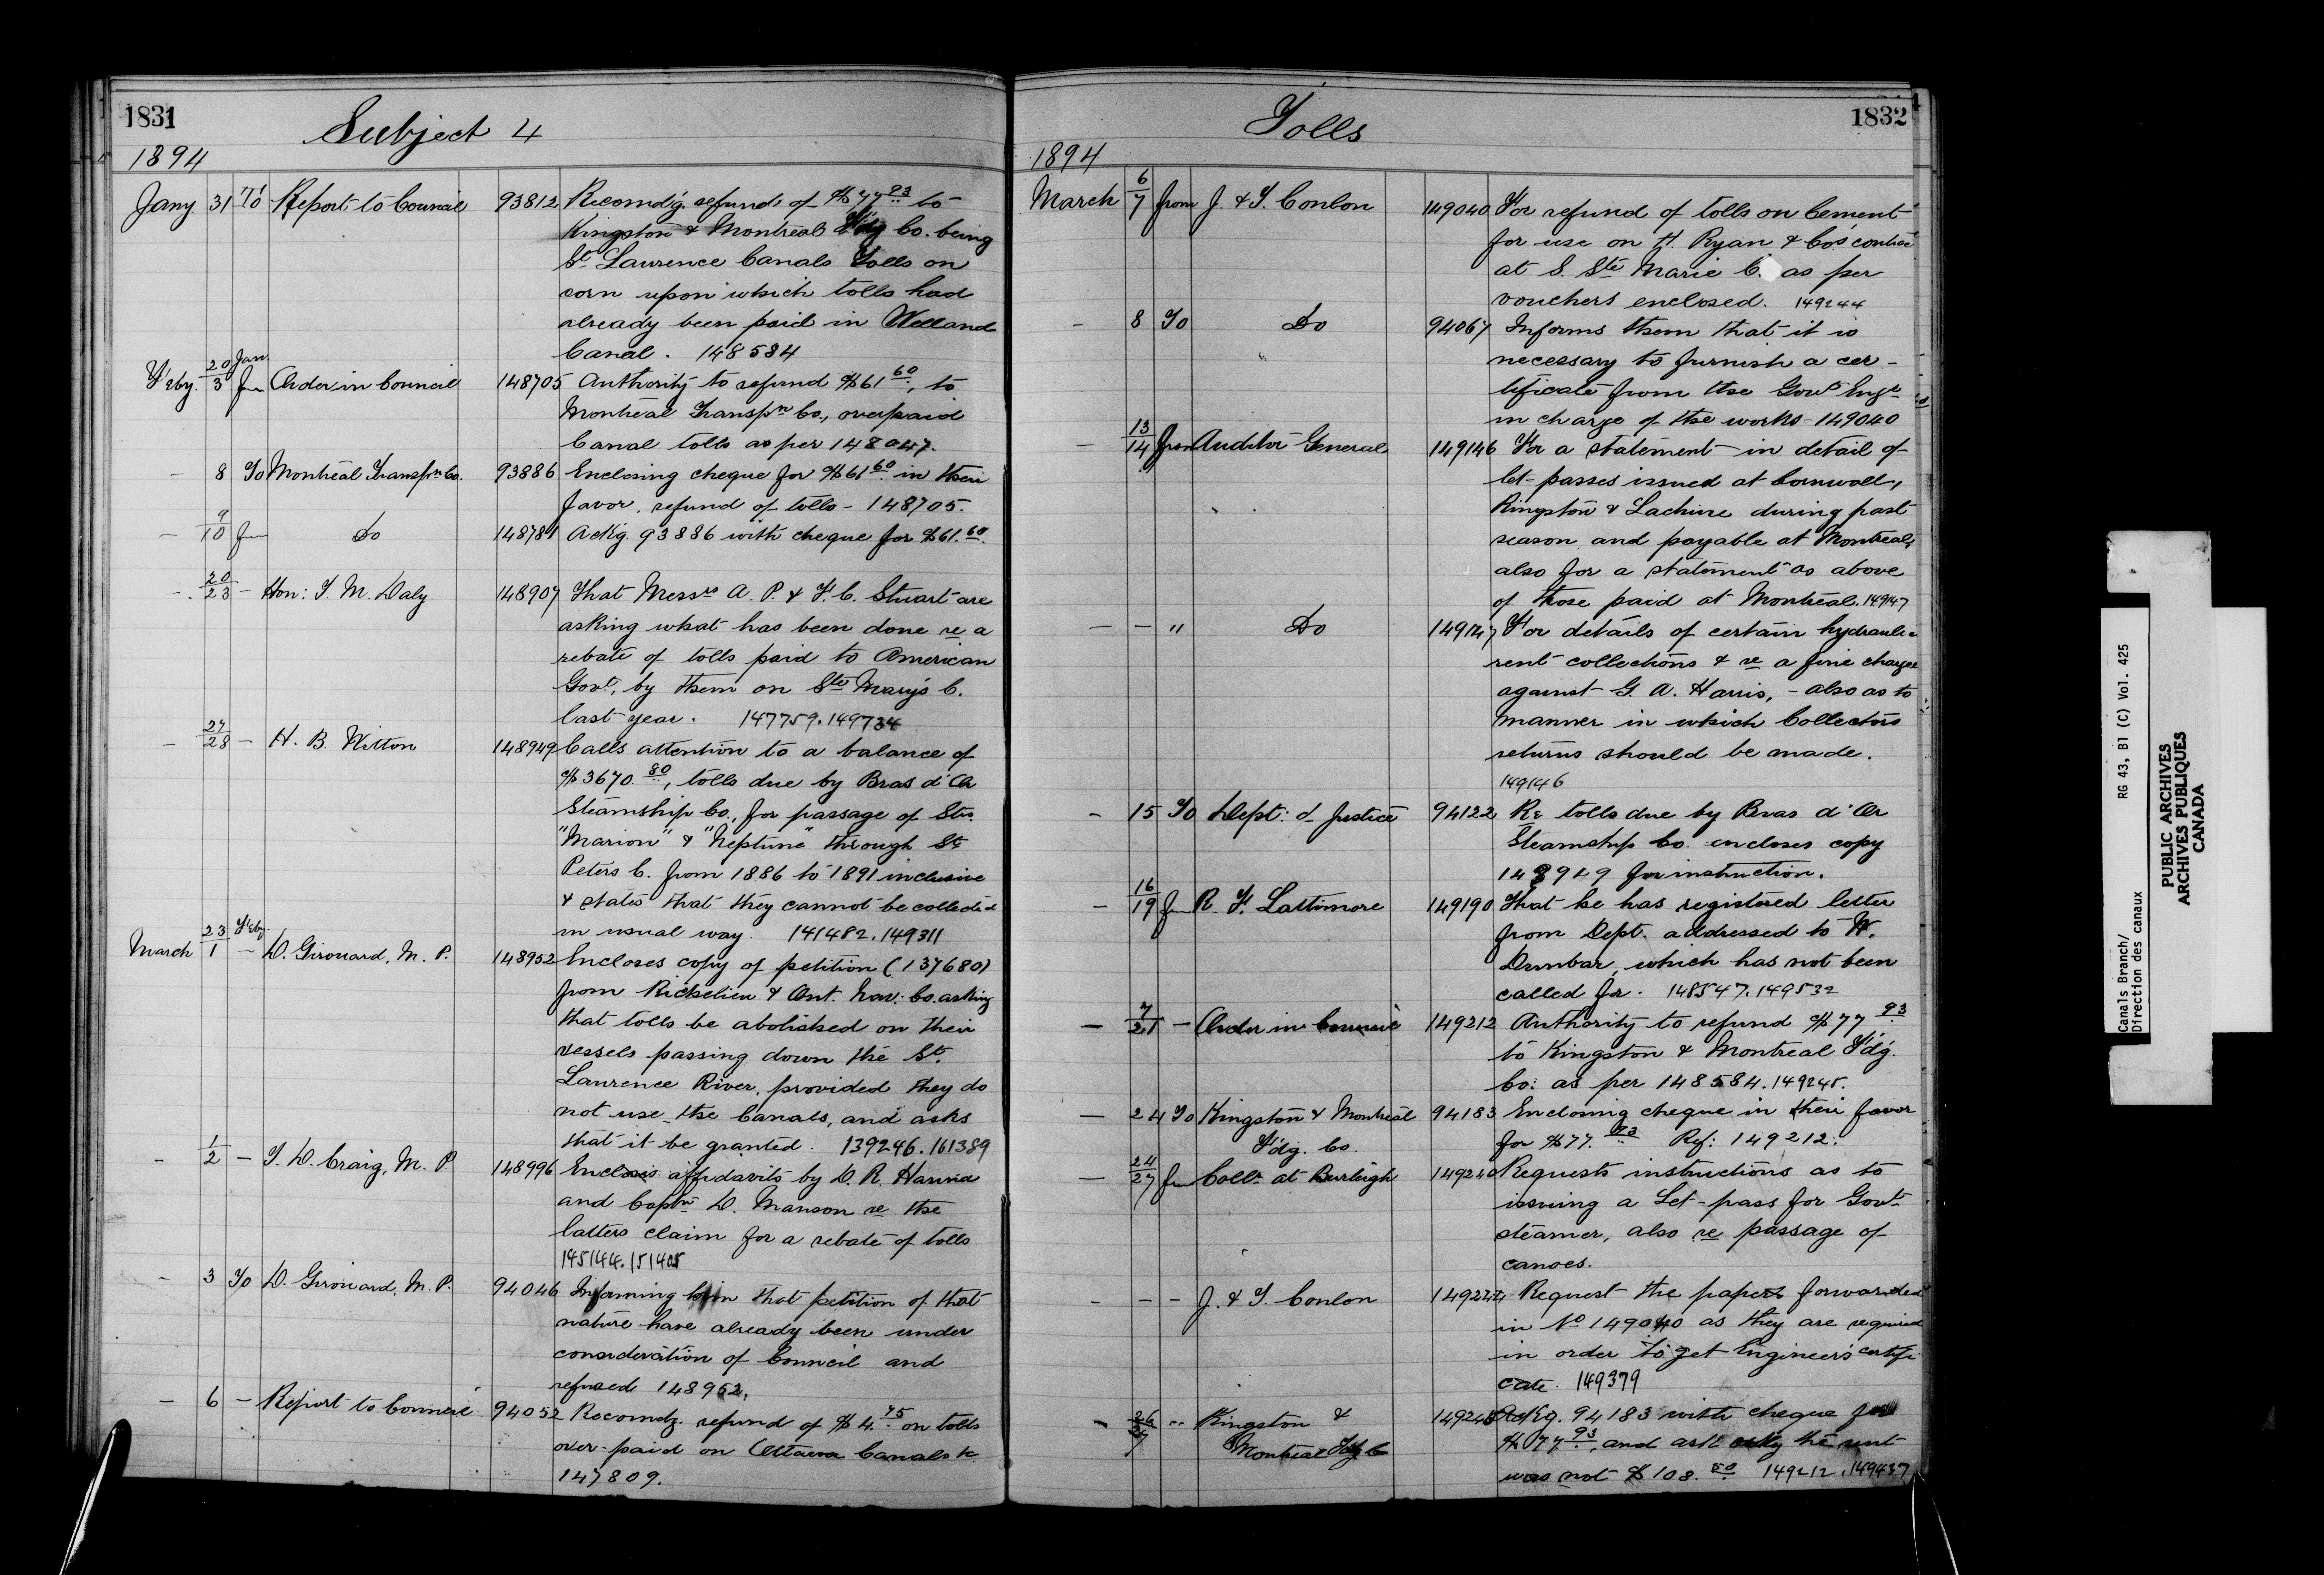 1831
Subject 4
1894
Jany. 31 To Report to Council 93812 Recomdg. refund of $77.93 to
Kingston & Montreal F'dg Co. being
St. Lawrence Canals Tolls on
corn upon which tolls had
already been paid in Welland
Canal. 148584
F'eby. 20 Jan/3 fm Order in Council 148705 Authority to refund $61.60, to
Montreal Transpn Co., overpaid
Canal tolls as per 148047.
- 8 To Montreal Transpn Co. 93886 Enclosing cheque for $61.60 in their
favor, refund of tolls - 148705.
- 9/10 fm Do 148781 Ackg 93886 with cheque for $61.60.
- 20/23 - Hon: T. M. Daly 148907 That Messrs A. P. & F. C. Stuart are
asking what has been done re a
rebate of tolls paid to American
Govt., by them on Ste Mary's C.
last year. 147759.149734
- 27/28 - H. B. Witton 148949 Calls attention to a balance of
$3670.80, tolls due by Bras d'Or
Steamship Co., for passage of Strs.
"Marion" & "Neptune" through St.
Peters C. from 1886 to 1891 inclusive
& states that they cannot be collected
in usual way. 141482.149311
March 23 F'eby/1 - D. Girouard, M. P. 148952 Encloses copy of petition (137680)
from Richelieu & Ont. Nav: Co. asking
that tolls be abolished on their
vessels passing down the St.
Lawrence River, provided they do
not use the Canals, and asks
that it be granted. 139246.161389
- 1/2 - T. D. Craig, M. P. 148996 Encloses affidavits by D. R. Hanna
and Captn D. Manson re the
latters claim for a rebate of tolls
145144.151405
- 3 To D. Girouard, M. P. 94046 Informing him that petition of that
nature have already been under
consideration of Council and
refused 148952.
- 6 - Report to Council 94052 Recomdg. refund of $4.75 on tolls
over-paid on Ottawa Canals &c.
147809.
Tolls
1832
1894
March 6/7 from J. & T. Conlon 149040 For refund of tolls on Cement
for use on H. Ryan & Co's contract
at S. Ste Marie C. as per
vouchers enclosed. 149244
- 8 To Do 94067 Informs them that it is
necessary to furnish a cer-
tificate from the Govt Engr
in charge of the works - 149040
- 13/14 from Auditor General 149146 For a statement in detail of
let-passes issued at Cornwall,
Kingston & Lachine during past
season and payable at Montreal,
also for a statement as above
of those paid at Montreal. 149147
- - " Do 149147 For details of certain hydraulic
rent collections & re a fine charge
against G. A. Harris, - also as to
manner in which Collectors
returns should be made.
149146
- 15 To Dept: of Justice 94122 Re tolls due by Bras d'Or
Steamship Co. encloses copy
148949 for instruction.
- 16/19 fm R. F. Lattimore 149190 That he has registered letter
from Dept. addressed to W.
Dunbar, which has not been
called for. 148547.149532
- 7/21 - Order in Council 149212 Authority to refund $77.93
to Kingston & Montreal F'dg.
Co: as per 148584.149245.
- 24 To Kingston & Montreal 94183 Enclosing cheque in their favor
F'dg. Co. for $77.93 Ref: 149212.
- 24/27 fm Collr at Burleigh 149240 Requests instructions as to
issuing a Let-pass for Govt
steamer, also re passage of
canoes.
- - - J. & T. Conlon 149244 Request the papers forwarded
in No 149040 as they are required
in order to get Engineer's certifi
cate. 149379
- 26/27 " Kingston & 149245 Ackg. 94183 with cheque for
Montreal F'dg Co $77.93, and ask why the sent
was not $108.50 149212.149437
Canals Branch/
Direction des canaux
RG 43, B1 (C) Vol. 425
PUBLIC ARCHIVES
ARCHIVES PUBLIQUES
CANADA